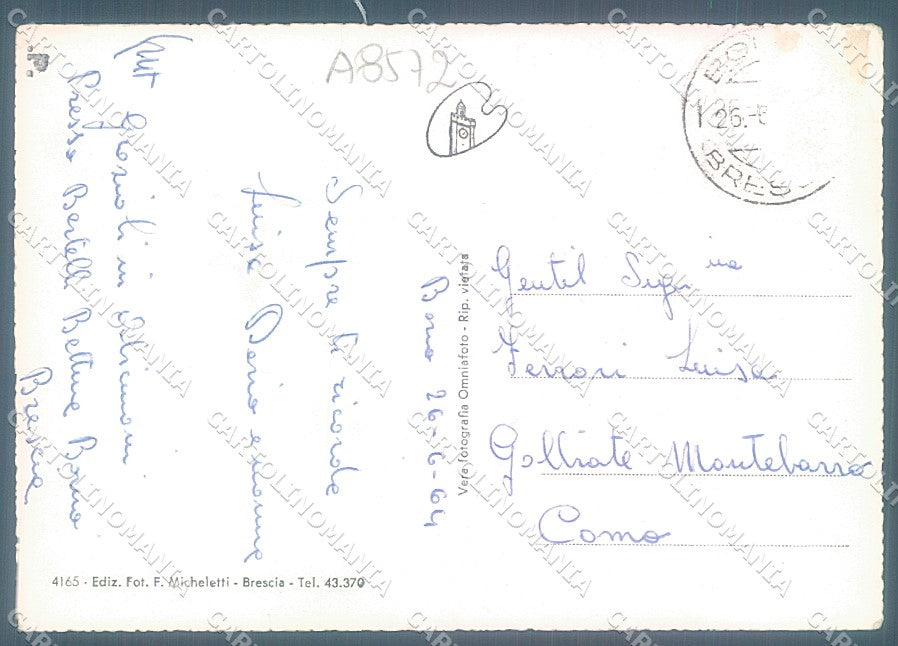 A8572
BO
26.-6
BRES
Sempre ti ricorda
Luisa Dario e nonna
Borno 26-6-64
Mit Graziol in
Presso Bertelli Bettina Borno
Brescia
Vera fotografia Omniafoto - Rip. vietata
Gentil Sig.na
Ferrari Luisa
Golbiate Montebarra
Como
4165 - Ediz. Fot. F. Micheletti - Brescia - Tel. 43.370
CARTOLINOMANIA